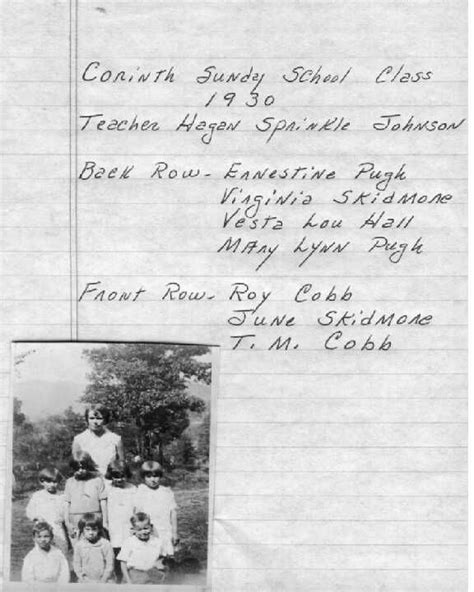 Corinth Sunday School Class
1930
Teacher Hagan Sprinkle Johnson
Back Row - Ernestine Pugh
Virginia Skidmore
Vesta Lou Hall
Mary Lynn Pugh
Front Row - Roy Cobb
June Skidmore
T. M. Cobb